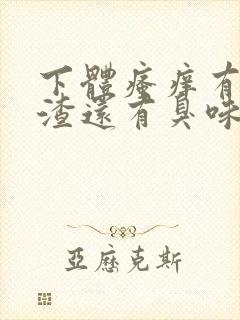 下體瘙癢有
渣還有臭味
亞歷克斯